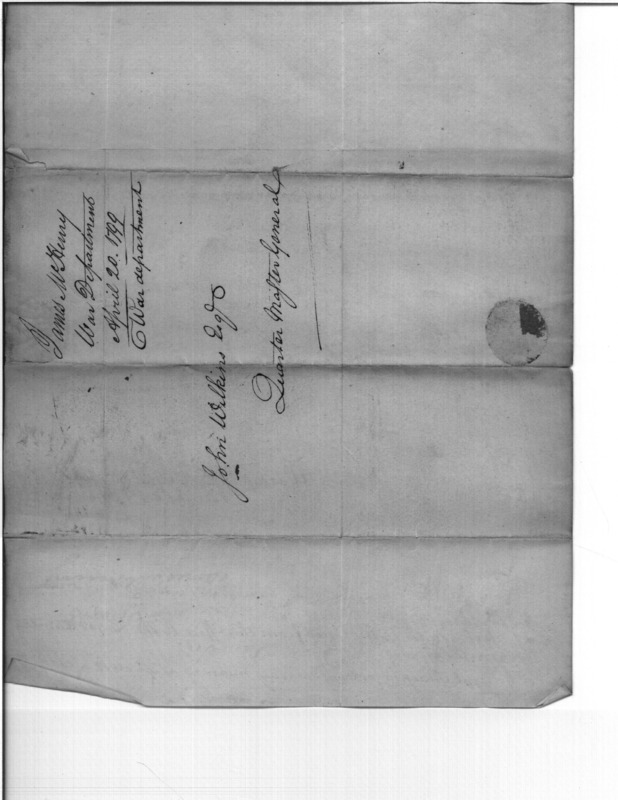 James McHenry
War Department
April 20. 1799
War department
John Wilkins Esqr
Quarter Master General